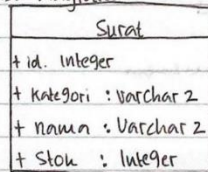 Surat
+ id. Integer
+ Kategori : Varchar 2
+ nama : Varchar 2
+ Stok : Integer